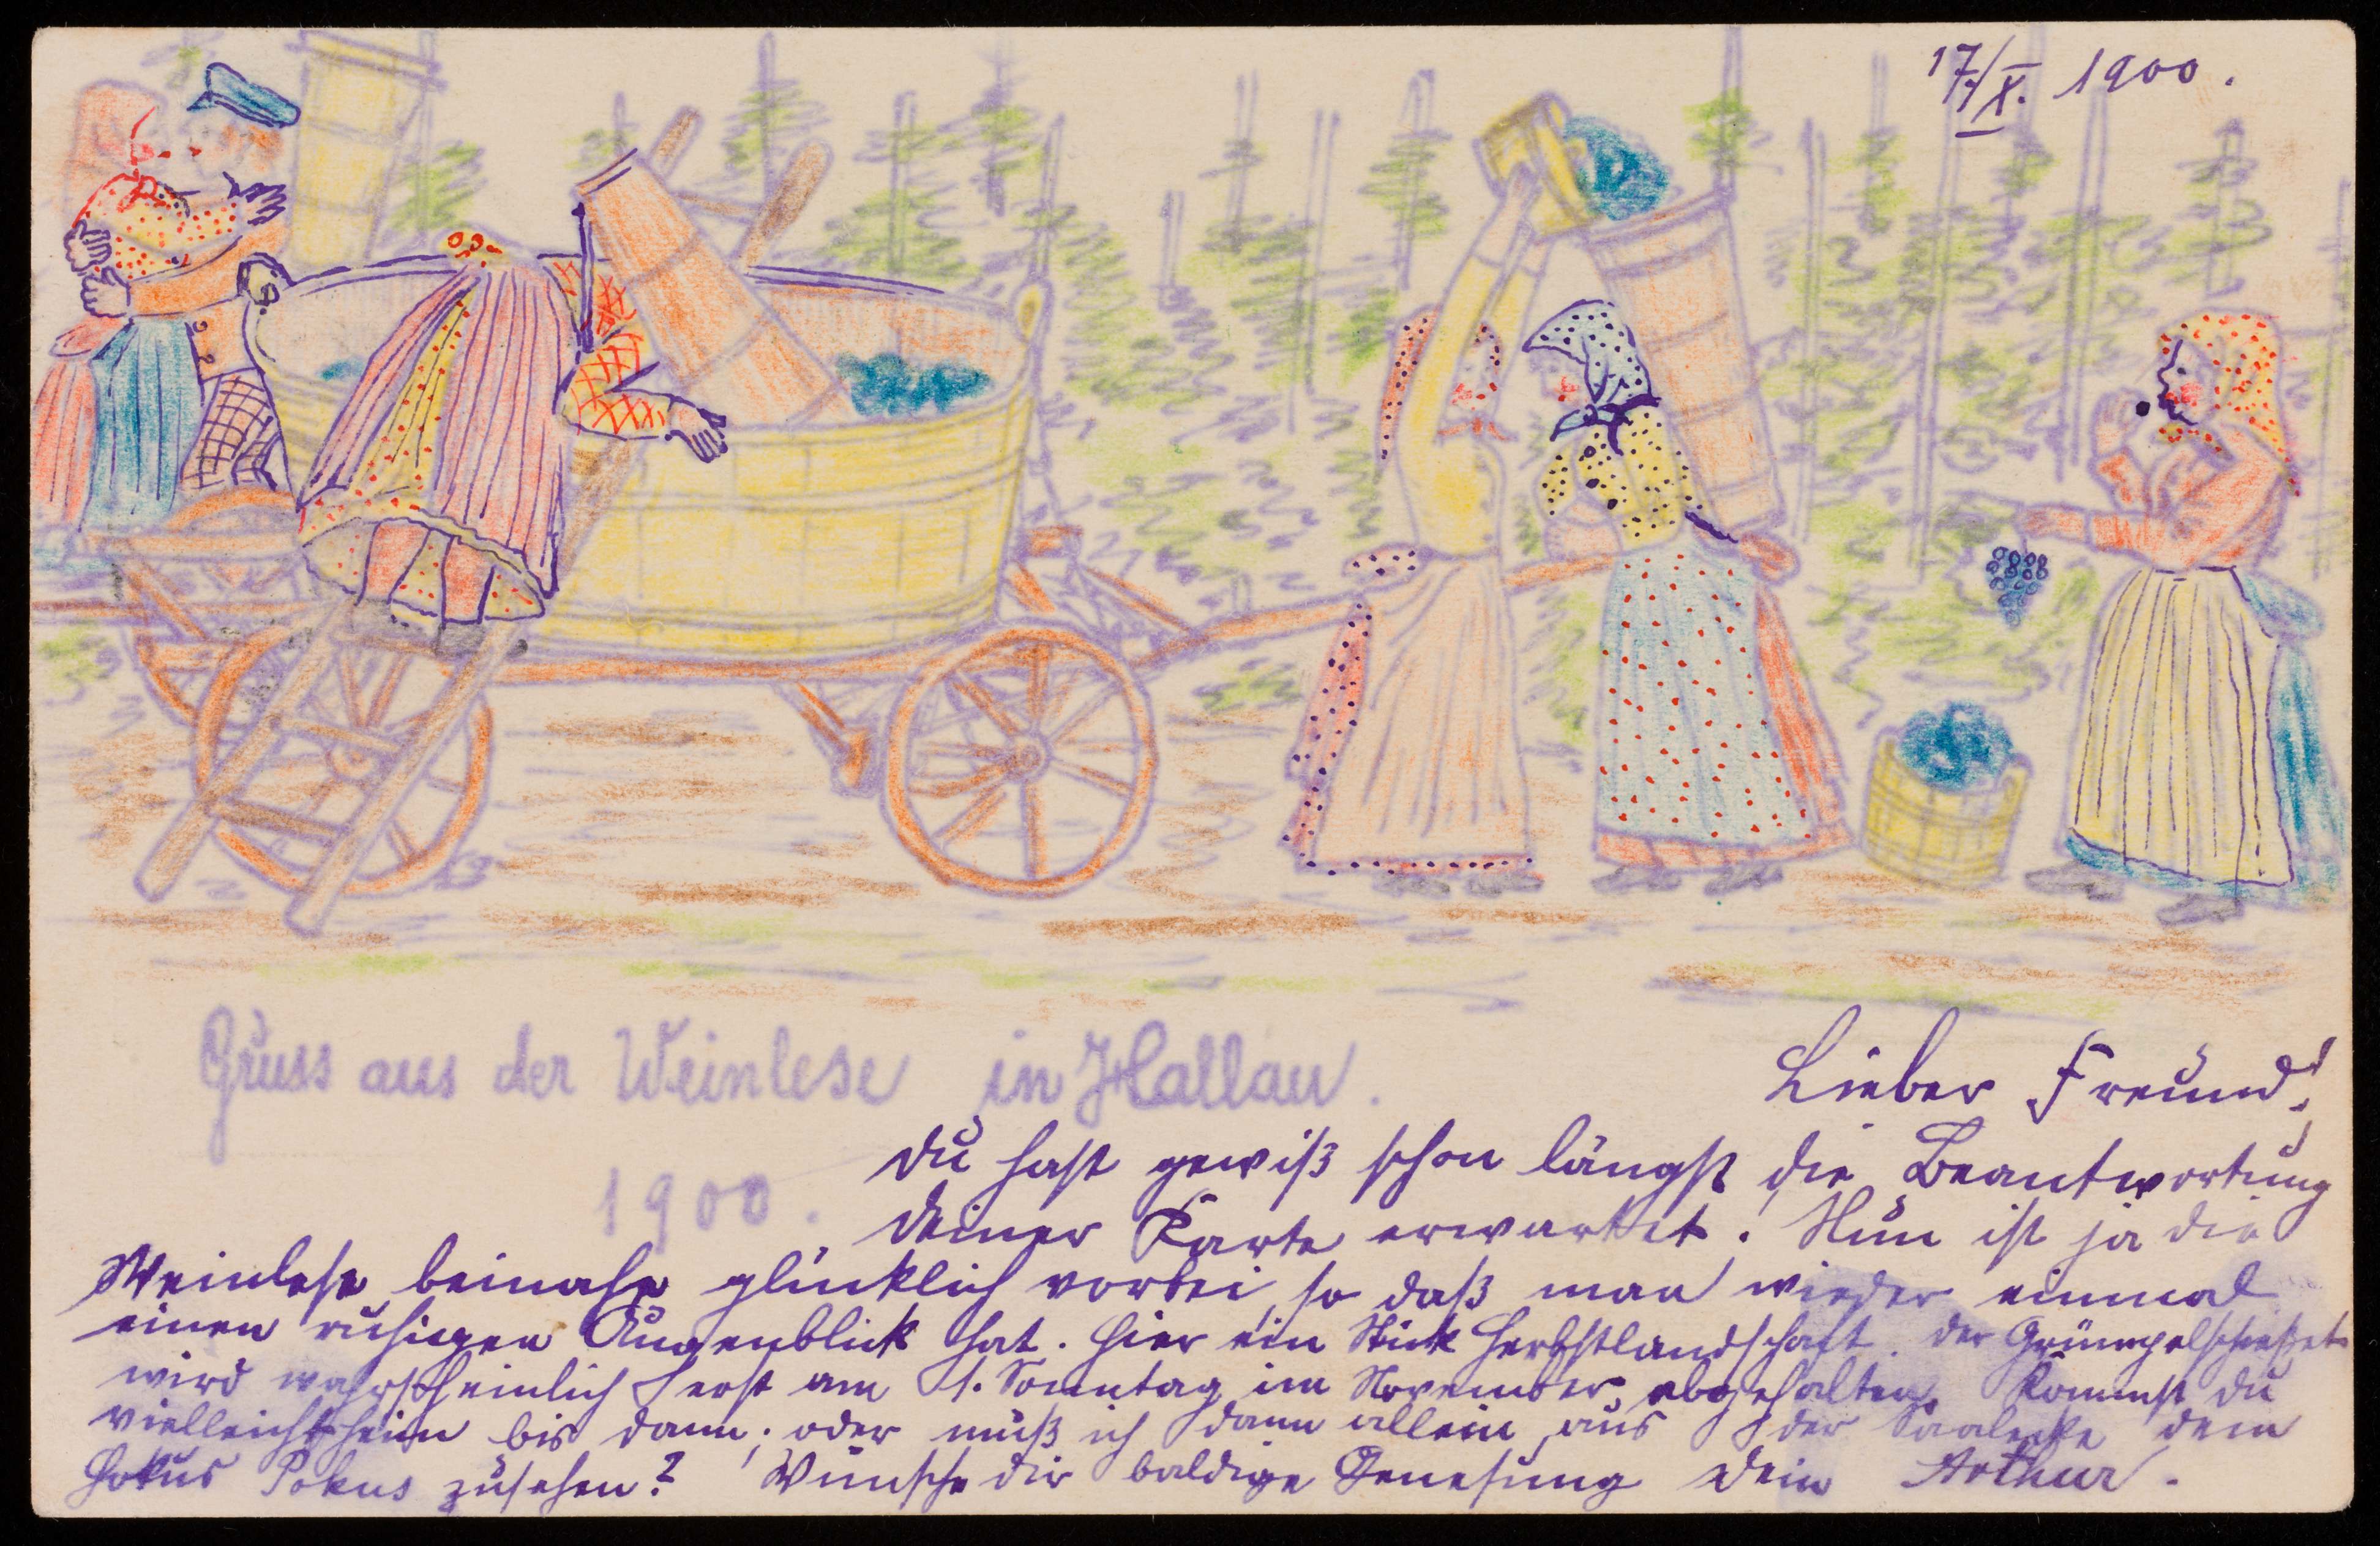 17./X. 1900.
Gruss aus der Weinlese in Hallau.
1900.
Lieber Freund!
Du hast gewiß schon längst die Beantwortung
Deiner Karte erwartet. Nun ist ja die
Weinlese beinahe glücklich vorbei, so daß man wieder einmal
einen ruhigen Augenblick hat. Hier ein Stück Herbstlandschaft. Der Grümpelschießet
wird wahrscheinlich erst am 1. Sonntag im November abgehalten. Kommst du
vielleicht heim bis dann, oder muß ich dann allein aus der Saalecke dem
Hokus Pokus zusehen? Wünsche dir baldige Genesung Dein Arthur.